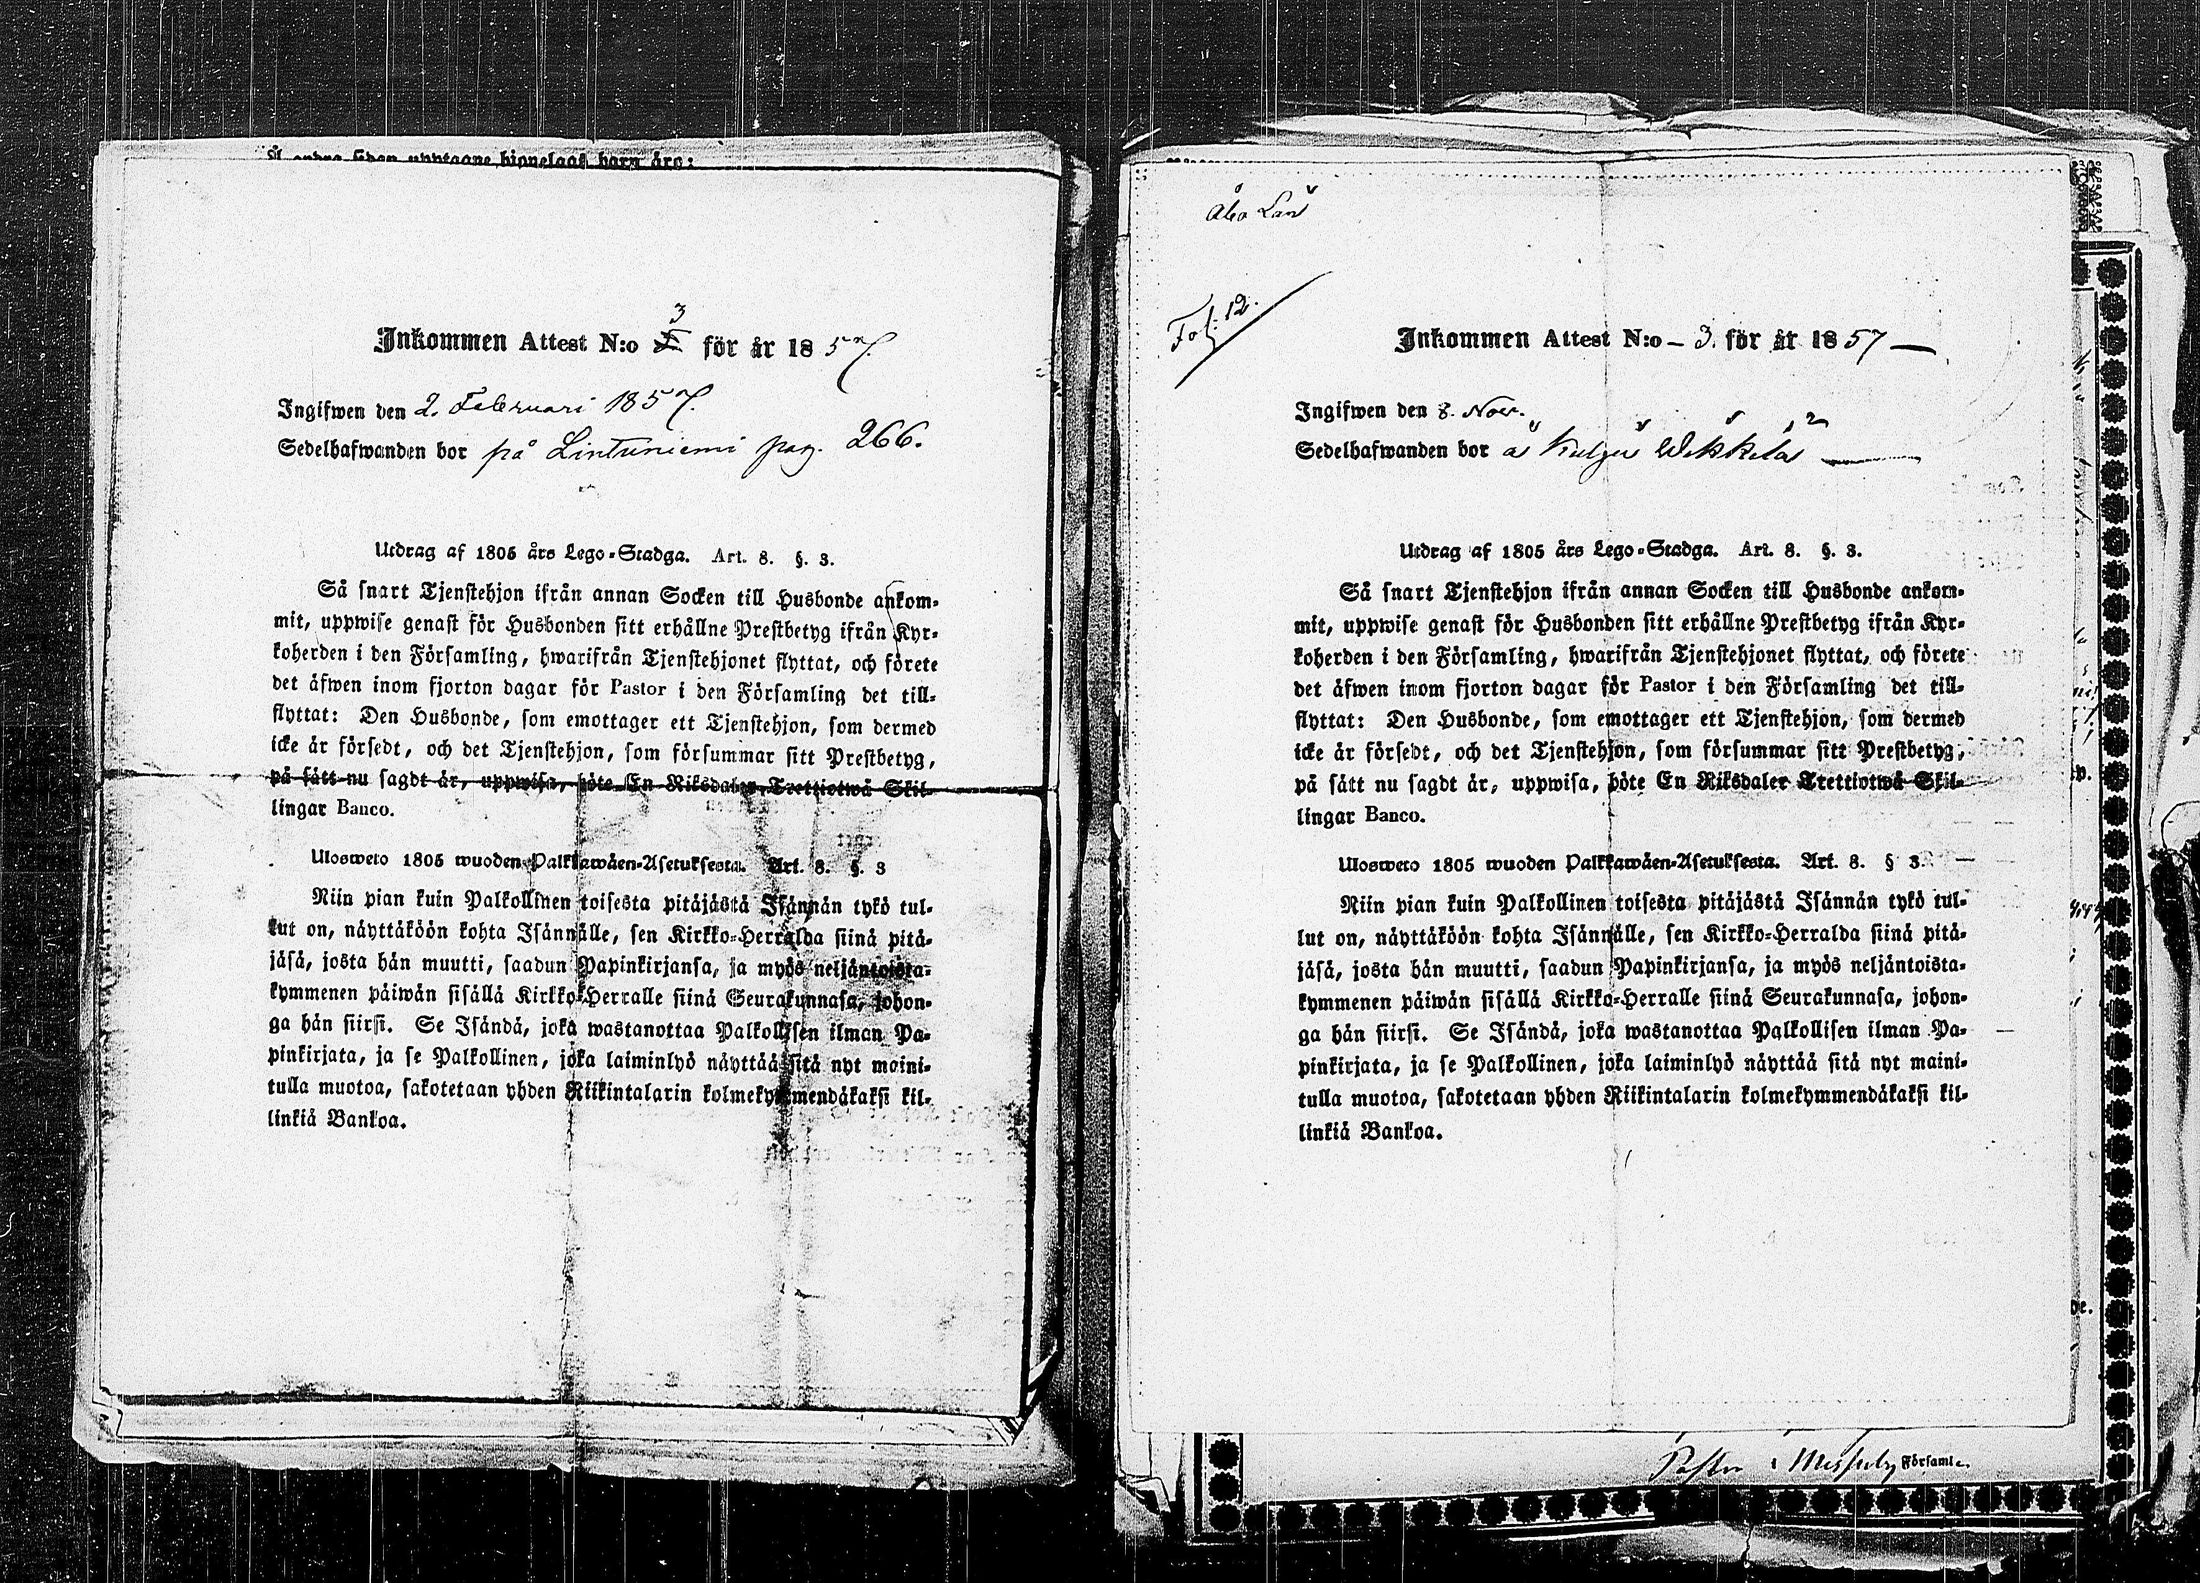 Å andra sidan upptagne hjonelags barn äro:
Inkommen Attest N:o 3 för år 1857.
Ingifwen den 2. Februari 1857.
Sedelhafwanden bor på Lintuniemi pag. 266.
Utdrag af 1805 års Lego-Stadga. Art. 8. §. 3.
Så snart Tjenstehjon ifrån annan Socken till Husbonde ankom-
mit, uppwise genast för Husbonden sitt erhållne Prestbetyg ifrån Kyr-
koherden i den Församling, hwarifrån Tjenstehjonet flyttat, och förete
det äfwen inom fjorton dagar för Pastor i den Församling det till-
flyttat: Den Husbonde, som emottager ett Tjenstehjon, som dermed
icke är försedt, och det Tjenstehjon, som försummar sitt Prestbetyg,
på sätt nu sagdt är, uppwisa, böte En Riksdaler Trettiotwå Skil-
lingar Banco.
Ulosweto 1805 wuoden Palkkawäen-Asetuksesta. Art. 8. §. 3
Niin pian kuin Palkollinen toisesta pitäjästä Isännän tykö tul-
lut on, näyttäköön kohta Isännälle, sen Kirkko-Herralda siinä pitä-
jäsä, josta hän muutti, saadun Papinkirjansa, ja myös neljäntoista-
kymmenen päiwän sisällä Kirkko-Herralle siinä Seurakunnasa, johon-
ga hän siirsi. Se Isändä, joka wastanottaa Palkollisen ilman Pa-
pinkirjata, ja se Palkollinen, joka laiminlyö näyttää sitä nyt maini-
tulla muotoa, sakotetaan yhden Riikintalarin kolmekymmendäkaksi kil-
linkiä Bankoa.
Åbo Län
Fol: 12.
Inkommen Attest N:o 3. för år 1857
Ingifwen den 8. Nov.
Sedelhafwanden bor å Kulju Wekkilä
Utdrag af 1805 års Lego-Stadga. Art. 8. §. 3.
Så snart Tjenstehjon ifrån annan Socken till Husbonde ankom-
mit, uppwise genast för Husbonden sitt erhållne Prestbetyg ifrån Kyr-
koherden i den Församling, hwarifrån Tjenstehjonet flyttat, och förete
det äfwen inom fjorton dagar för Pastor i den Församling det till-
flyttat: Den Husbonde, som emottager ett Tjenstehjon, som dermed
icke är försedt, och det Tjenstehjon, som försummar sitt Prestbetyg,
på sätt nu sagdt är, uppwisa, böte En Riksdaler Trettiotwå Skil-
lingar Banco.
Ulosweto 1805 wuoden Palkkawäen-Asetuksesta. Art. 8. § 3.
Niin pian kuin Palkollinen toisesta pitäjästä Isännän tykö tul-
lut on, näyttäköön kohta Isännälle, sen Kirkko-Herralda siinä pitä-
jäsä, josta hän muutti, saadun Papinkirjansa, ja myös neljäntoista-
kymmenen päiwän sisällä Kirkko-Herralle siinä Seurakunnasa, johon-
ga hän siirsi. Se Isändä, joka wastanottaa Palkollisen ilman Pa-
pinkirjata, ja se Palkollinen, joka laiminlyö näyttää sitä nyt maini-
tulla muotoa, sakotetaan yhden Riikintalarin kolmekymmendäkaksi kil-
linkiä Bankoa.
Pastor i Messuby Församl.